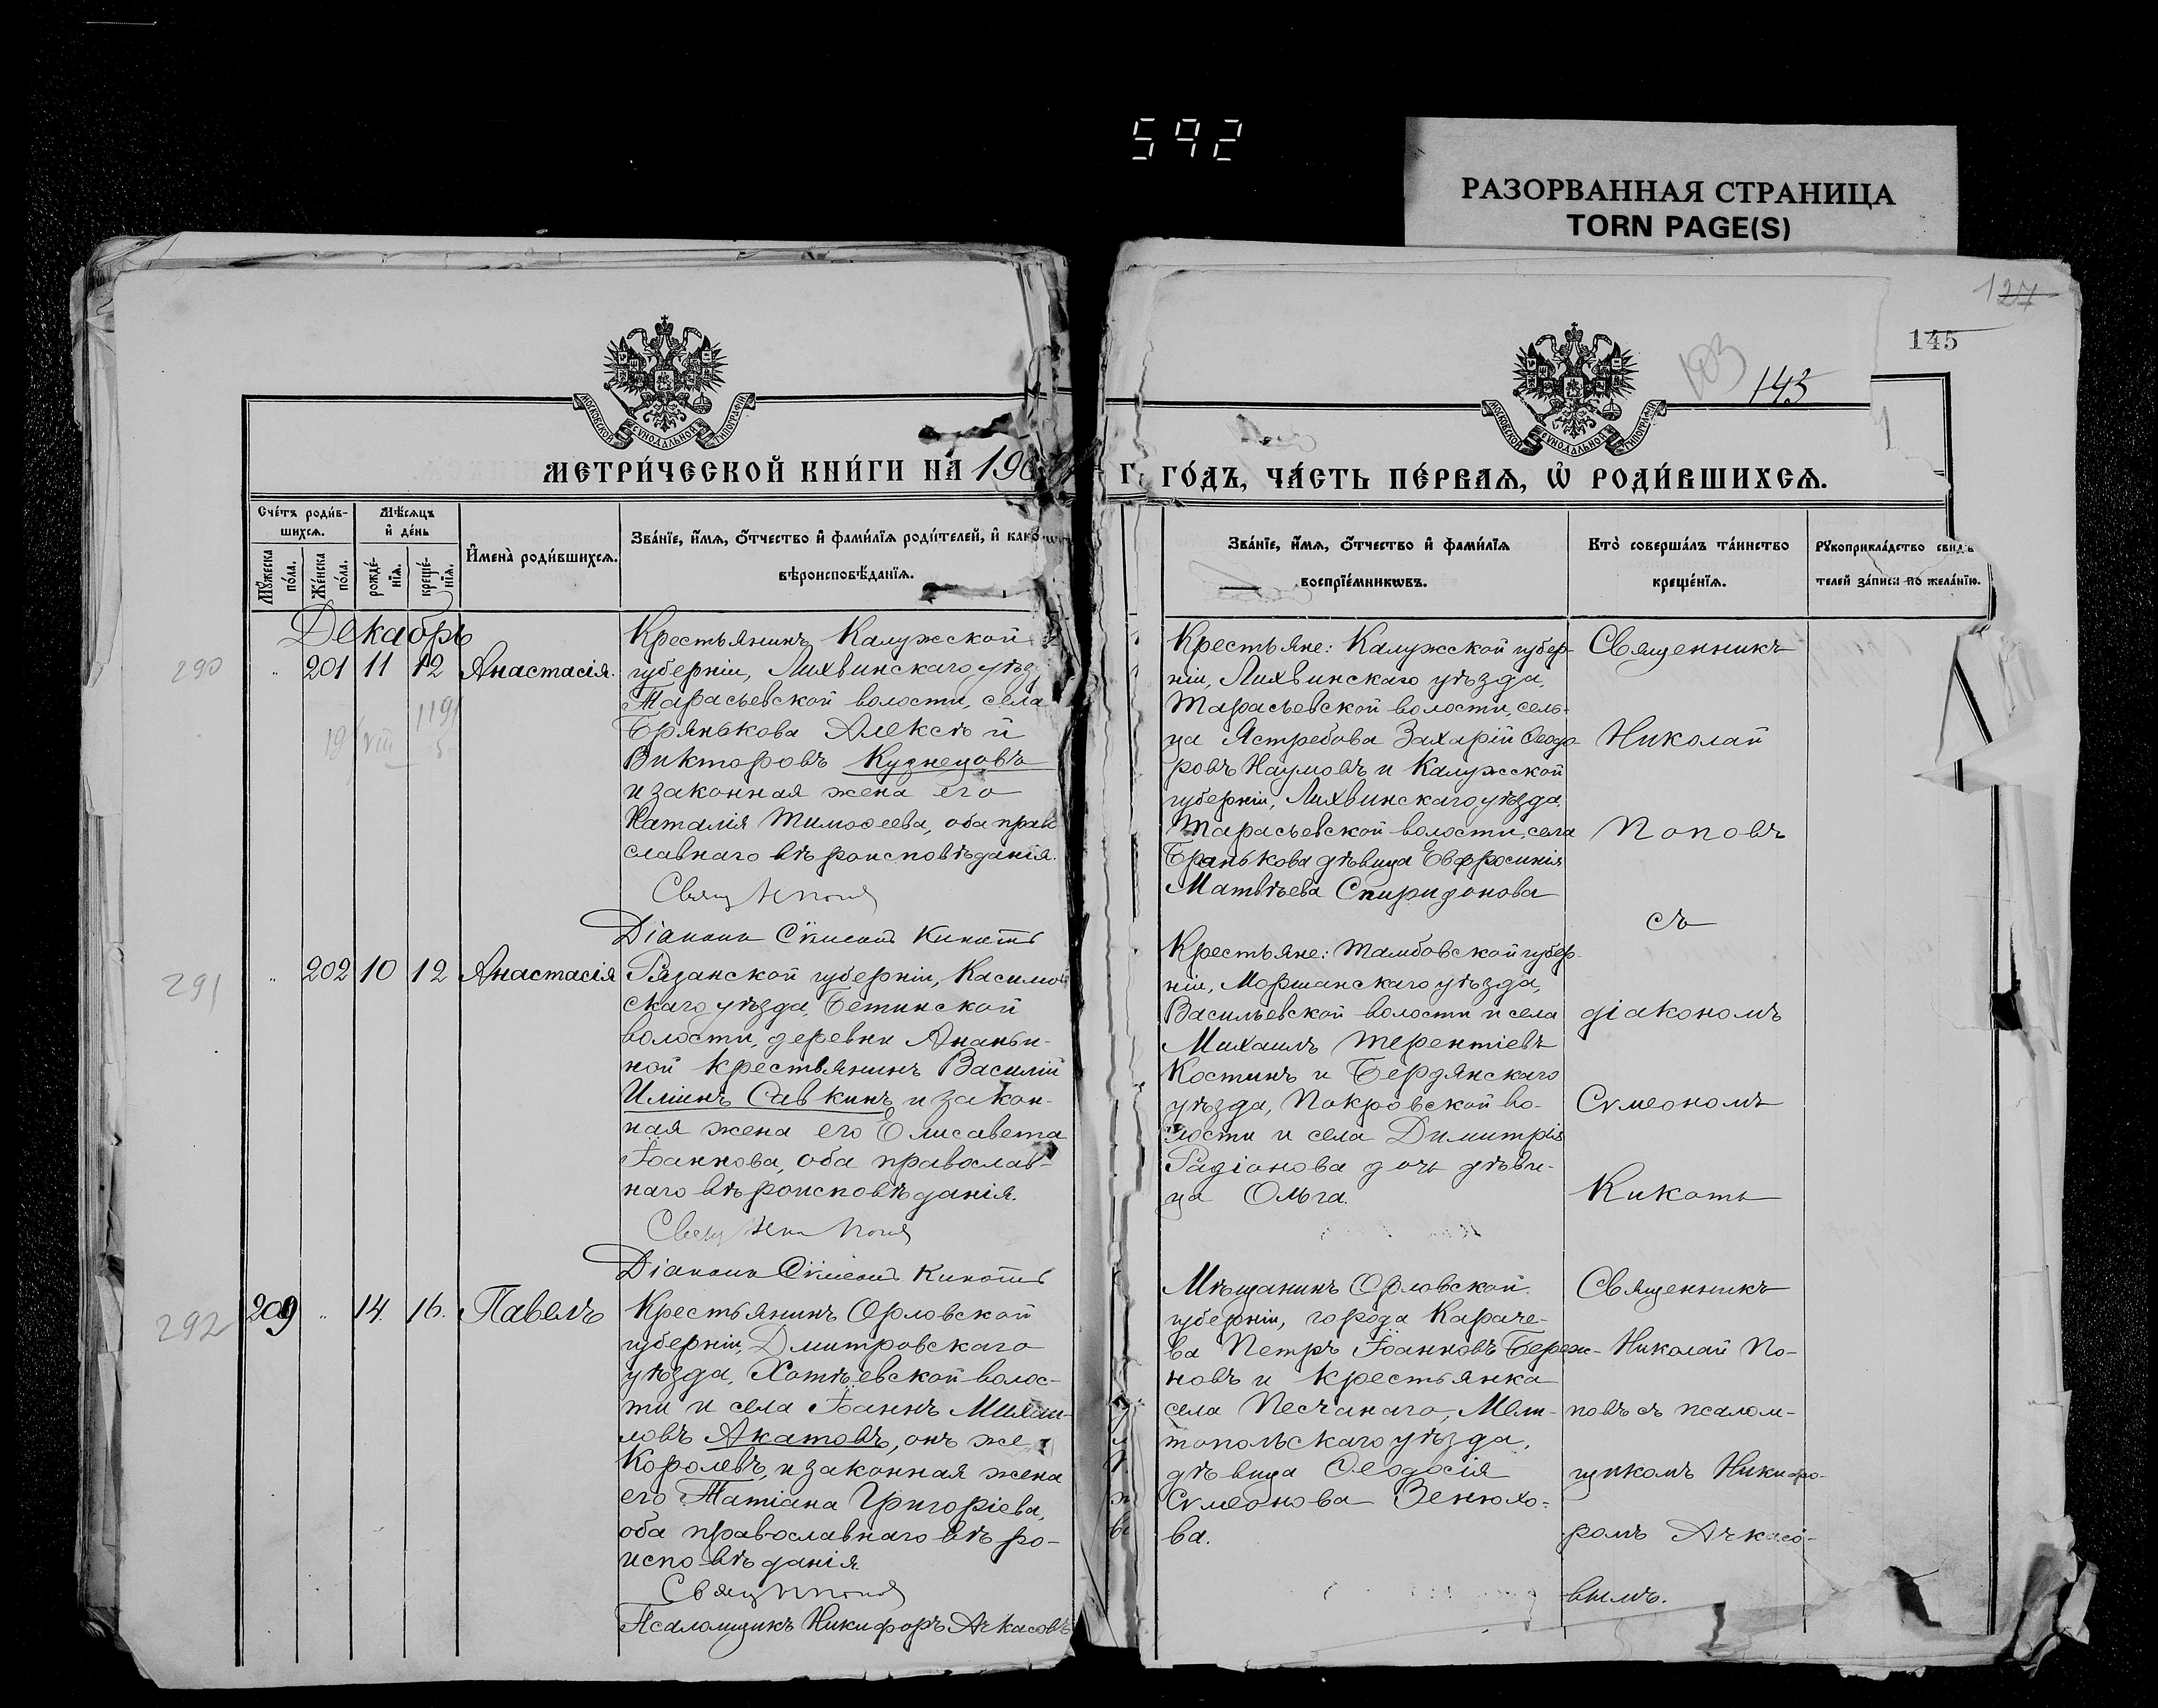 592
РАЗОРВАННАЯ СТРАНИЦА
TORN PAGE(S)
127
145
103
143
МОСКОВСКОЙ СѴНОДАЛЬНОЙ ТИПОГРАФІИ
МОСКОВСКОЙ СѴНОДАЛЬНОЙ ТИПОГРАФІИ
МЕТРИ́ЧЕСКОЙ КНИ́ГИ НА 190
Г. ГО́ДЪ, ЧА́СТЬ ПЕ́РВАѦ, Ѿ РОДИ́ВШИХСѦ.
Сче́тъ роди́в-
шихсѧ.
Мѣ́сѧцъ
и҆ де́нь
Мꙋ́жеска
по́ла.
Же́нска
по́ла.
рожде́-
нїѧ.
креще́-
нїѧ.
И҆мена̀ роди́вшихсѧ.
Зва́нїе, и҆́мѧ, ѻ҆́тчество и҆ фами́лїѧ роди́телей, и҆ како́
вѣроисповѣ́данїѧ.
Зва́нїе, и҆́мѧ, ѻ҆́тчество и҆ фами́лїѧ
воспрїе́мникѡвъ.
Кто̀ соверша́лъ та́инство
креще́нїѧ.
Рꙋкоприкла́дство свидѣ
телей за́писи по жела́нїю.
Декабрь
290
201 11 12 Анастасія.
Крестьянинъ Калужской
губерніи, Лихвинскаго уѣзд
Тарасьевской волости, села
Брянькова Алексѣй
Викторовъ Кузнецовъ
и законная жена его
Наталія Тимоѳеева, оба прав
славнаго вѣроисповѣданія.
Свящ Н Попов
Діаконъ Сѵмеонъ Кикоть
Крестьяне: Калужской губер-
ніи, Лихвинскаго уѣзда,
Тарасьевской волости, сель-
ца Ястребова Захарій Ѳеодо-
ровъ Наумовъ и Калужской
губерніи, Лихвинскаго уѣзда,
Тарасьевской волости, села
Бранькова дѣвица Евфросинія
Матвѣева Спиридонова
Священникъ
Николай
Поповъ
съ
діакономъ
Сѵмеономъ
Кикоть
291
202 10 12 Анастасія
Рязанской губерніи, Касимов
скаго уѣзда, Бетинской
волости, деревни Ананьи-
ной крестьянинъ Василій
Илiинъ Савкинъ и закон-
ная жена его Елисавета
Іоаннова, оба православ-
наго вѣроисповѣданія.
Свящ Ник Попов
Діаконъ Сѵмеонъ Кикоть
Крестьяне: Тамбовской губер-
ніи, Моршанскаго уѣзда,
Васильевской волости и села
Михаилъ Терентіевъ
Костинъ и Бердянскаго
уѣзда, Покровской во-
лости и села Димитрія
Радіонова дочь дѣви-
ца Ольга.
292
209 14. 16. Павелъ
Крестьянинъ Орловской
губерніи, Дмитровскаго
уѣзда, Хотѣевской волос-
ти и села Іоаннъ Михаи-
ловъ Акатовъ, онъ же
Королевъ, и законная жена
его Татіана Григоріева,
оба православнаго вѣро-
исповѣданія.
Свящ Н Попов
Псаломщикъ Никифоръ Ачкасовъ
Мѣщанинъ Орловской
губерніи, города Караче-
ва Петръ Іоанновъ Береж-
новъ и крестьянка
села Песчанаго, Мели-
топольскаго уѣзда,
дѣвица Ѳеодосія
Сѵмеонова Зенюхо-
ва.
Священникъ
Николай По-
повъ съ псалом-
щикомъ Никифо-
ромъ Ачкасо-
вымъ.